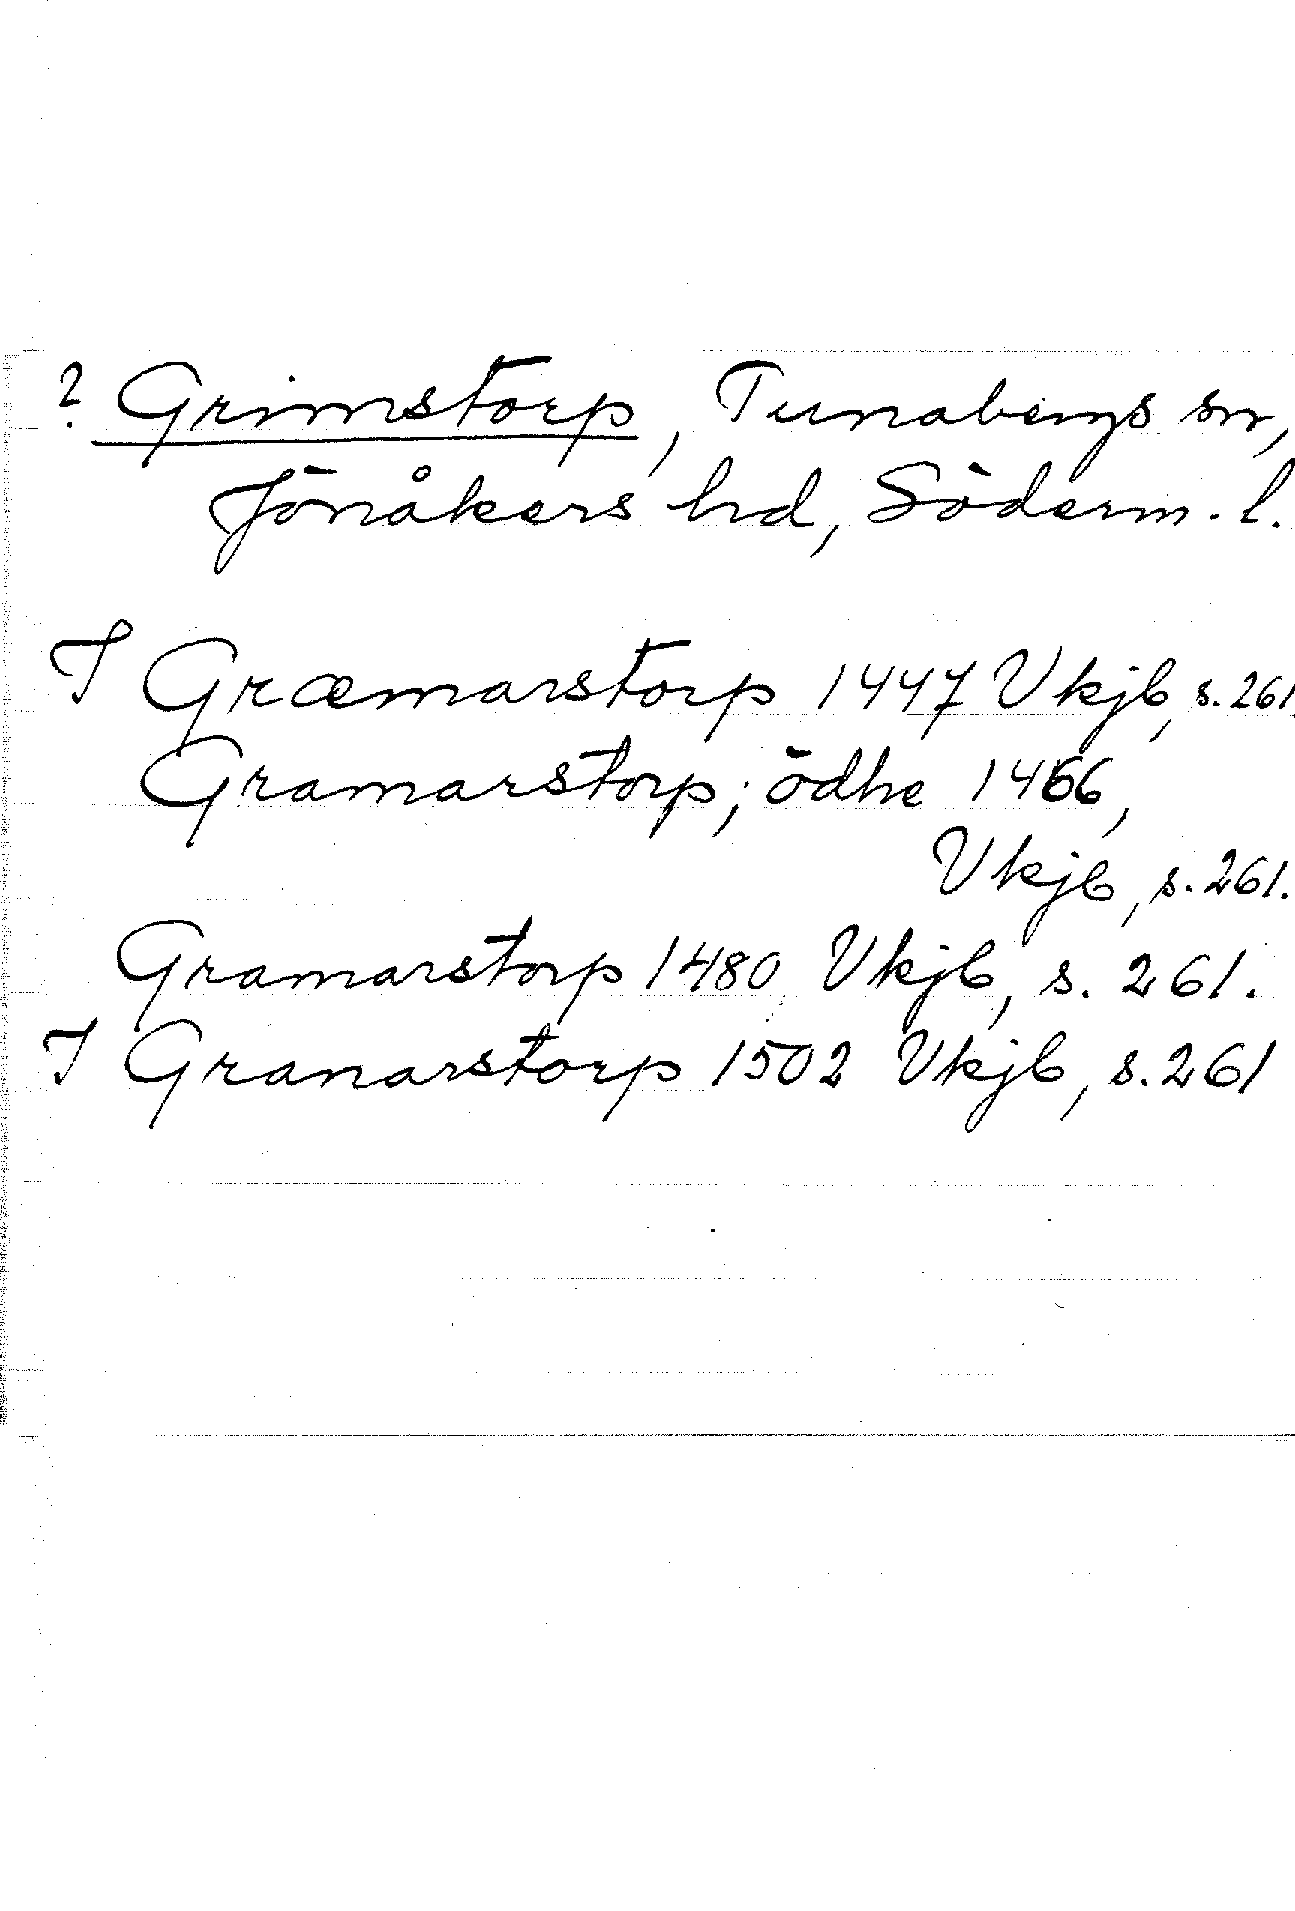 ? Grimstorp, Tunabergs sn,
Jönåkers hd, Söderm. l.
I Græmarstorp 1447 Vkjb, s. 261.
Gramarstorp; ödhe 1466,
Vkjb, s. 261.
Gramarstorp 1480 Vkjb, s. 261.
I Granarstorp 1502 Vkjb, s. 261